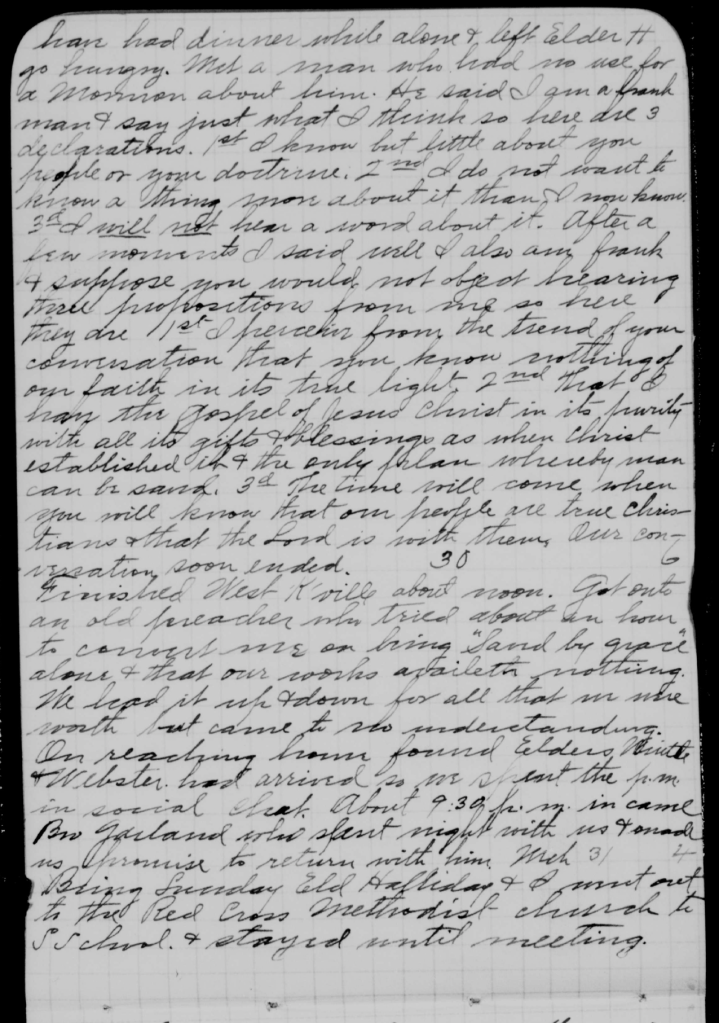 have had dinner while alone & left Elder H
go hungry. Met a man who had no use for
a Mormon about him. He said I am a frank
man & say just what I think so here are 3
declarations. 1st I know but little about you
people or your doctrine. 2nd I do not want to
know a thing more about it than I now know.
3d I will not hear a word about it. After a
few moments I said well I also am frank
& suppose you would not object hearing
three propositions from me so here
they are 1st I perceive from the trend of your
conversation that you know nothing of
our faith in its true light 2nd That I
have the Gospel of Jesus Christ in its purity
with all its gifts & blessings as when Christ
established it & the only plan whereby man
can be saved. 3d The time will come when
you will know that our people are true Chris-
tians & that the Lord is with them. Our con-
versation soon ended. 30 6
Finished West K'ville about noon. Got onto
an old preacher who tried about an hour
to convert me on being "Saved by grace"
alone & that our works availeth nothing.
We had it up & down for all that we were
worth but came to no understanding.
On reaching home found Elders
& Webster had arrived so we spent the p.m.
in social chat. About 9:30 p.m. in came
Bro Garland who spent night with us & made
us promise to return with him Mch 31 4
Being Sunday Eld Halliday & I went out
to the Red Cross Methodist church to
S School. & stayed until meeting.